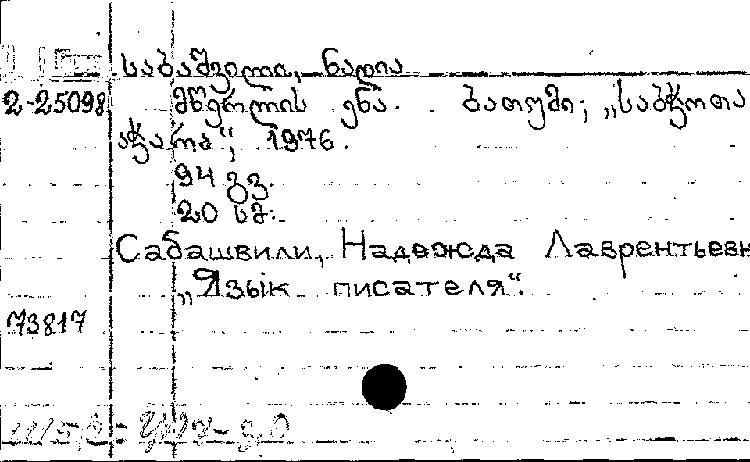 საბაშვილი, ნადია
2-25098 მწერლის ენა. ბათუმი; „საბჭოთა
აჭარა“, 1976.
94 გვ.
20 სმ.
Сабашвили, Надежда Лаврентьевн
„Язык писателя“.
73817